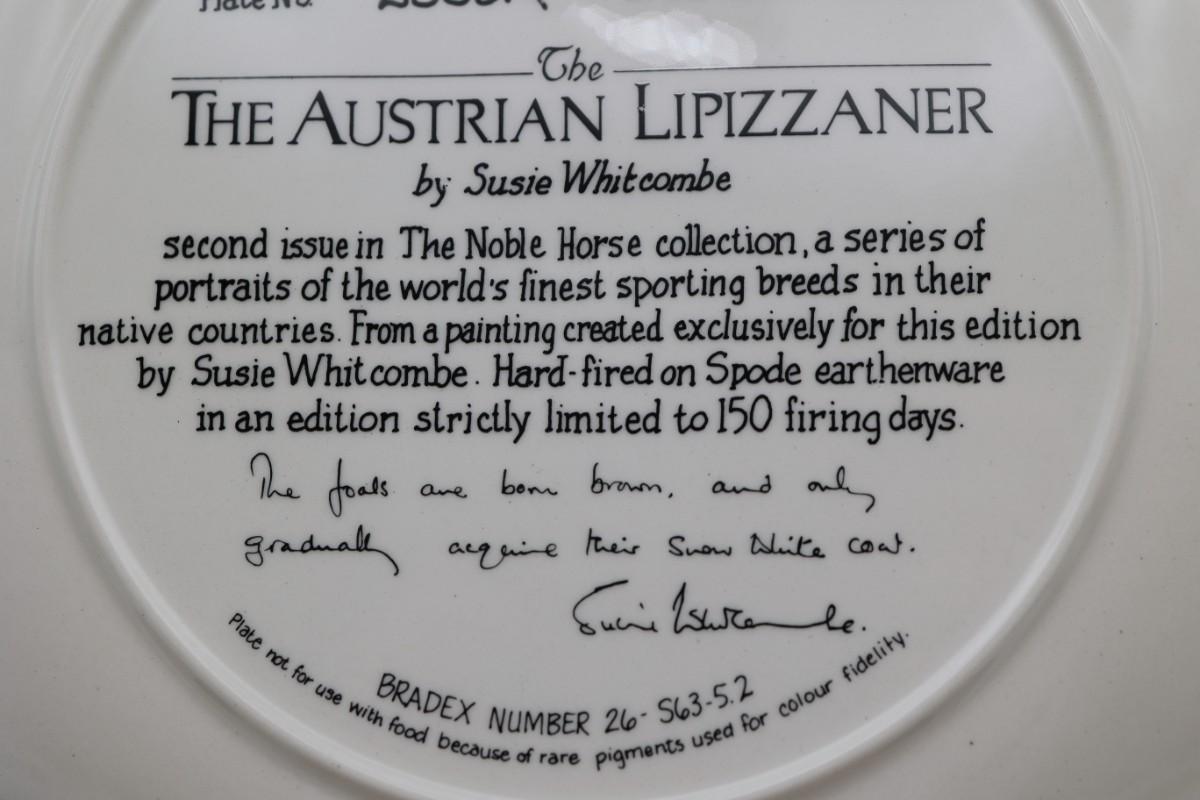 Plate No.
The
THE AUSTRIAN LIPIZZANER
by Susie Whitcombe
second issue in The Noble Horse collection, a series of
portraits of the world's finest sporting breeds in their
native countries. From a painting created exclusively for this edition
by Susie Whitcombe. Hard-fired on Spode earthenware
in an edition strictly limited to 150 firing days.
The foals are born brown, and only
gradually acquire their Snow White coat.
Susie Whitcombe.
BRADEX NUMBER 26-S63-5.2
Plate not for use with food because of rare pigments used for colour fidelity.